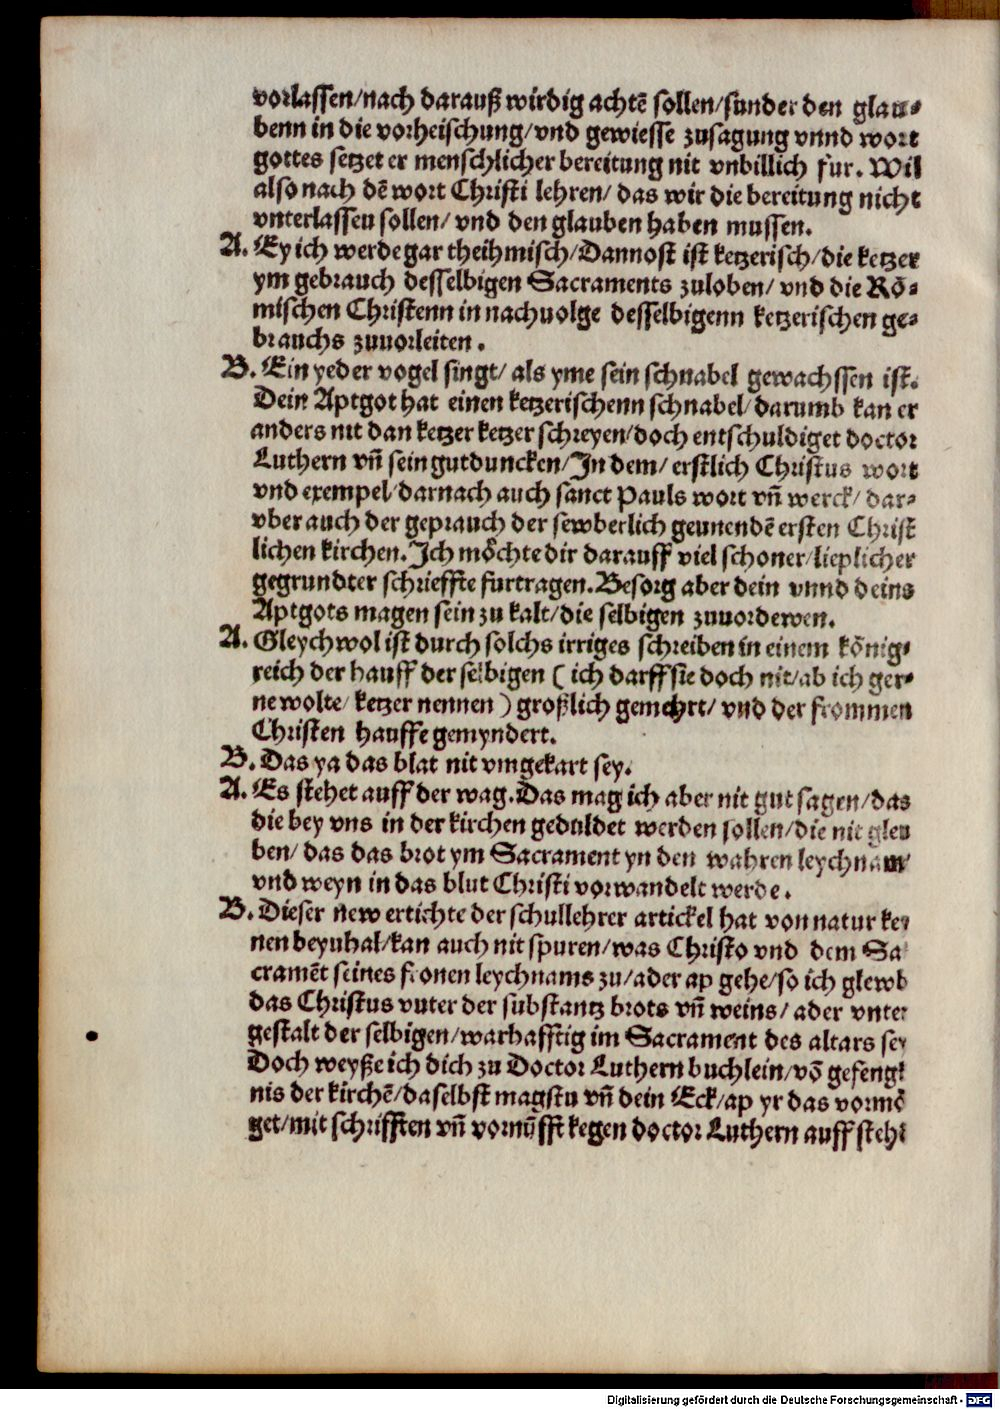 vorlassen/nach darauß wirdig achtē sollen/sunder den glau⸗
benn in die vorheischung/vnd gewiesse zusagung vnnd wort
gottes setzet er menschlicher bereitung nit vnbillich fur. Wil
also nach dē wort Christi lehren/ das wir die bereitung nicht
vnterlassen sollen/ vnd den glauben haben mussen.
A. Ey ich werde gar theihmisch/Dannost ist ketzerisch/die ketzer
ym gebrauch desselbigen Sacraments zuloben/ vnd die Rö⸗
mischen Christenn in nachuolge desselbigenn ketzerischen ge⸗
brauchs zuuorleiten.
B. Ein yeder vogel singt/ als yme sein schnabel gewachssen ist.
Dein Aptgot hat einen ketzerischenn schnabel/darumb kan er
anders nit dan ketzer ketzer schreyen/doch entschuldiget doctor
Luthern vn̄ sein gutduncken/In dem/ erstlich Christus wort
vnd exempel/darnach auch sanct Pauls wort vn̄ werck/ dar⸗
vber auch der geprauch der sewberlich geunendē ersten Christ
lichen kirchen. Ich möchte dir darauff viel schoner/lieplicher
gegrundter schrieffte furtragen. Besorg aber dein vnnd deins
Aptgots magen sein zu kalt/die selbigen zuuordewen.
A. Gleychwol ist durch solchs irriges schreiben in einem könig⸗
reich der hauff der selbigen ( ich darff sie doch nit/ab ich ger⸗
ne wolte/ ketzer nennen ) großlich gemehrt/ vnd der frommen
Christen hauffe gemyndert.
B. Das ya das blat nit vmgekart sey.
A. Es stehet auff der wag. Das mag ich aber nit gut sagen/das
die bey vns in der kirchen geduldet werden sollen/die nit gleu
ben/ das das brot ym Sacrament yn den wahren leychnam/
vnd weyn in das blut Christi vorwandelt werde.
B. Dieser new ertichte der schullehrer artickel hat von natur key
nen beyuhal/kan auch nit spuren/was Christo vnd dem Sa
cramēt seines fronen leychnams zu/ader ap gehe/so ich glewb
das Christus vnter der substantz brots vn̄ weins/ ader vnter
gestalt der selbigen/warhafftig im Sacrament des altars sey
Doch weyße ich dich zu Doctor Luthern buchlein/vō gefengk
nis der kirchē/daselbst magstu vn̄ dein Eck/ap yr das vormö
get/mit schrifften vn̄ vornūfft kegen doctor Luthern auff steh
Digitalisierung gefördert durch die Deutsche Forschungsgemeinschaft - DFG